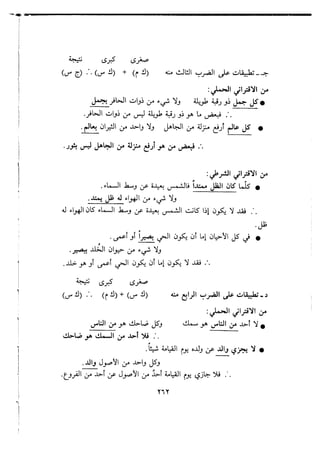 صغرى كبرى نتيجة
جـ ـ تطبيقات على الضرب الثالث منه (ك م) + (ك س) ∴ (ج س)
من الاقتراني الحملي:
● كل جمل ذو رقبة طويلة ولا شيء من ذوات الحافر بجمل
∴ فبعض ما هو ذو رقبة طويلة ليس من ذوات الحافر.
● كل عالم أرفع منزلة من الجاهل ولا واحد من الثيران بعالم.
∴ فبعض من هو أرفع منزلة من الجاهل ليس بثور.
من الاقتراني الشرطي:
● كلما كان الظل ممتداً فالشمس بعيدة عن وسط السماء.
ولا شيء من الهواء له ظل يمتد.
∴ فقد لا يكون إذا كانت الشمس بعيدة عن وسط السماء كان الهواء له
ظل.
● في كل الأحيان إما أن يكون الحي بصيراً أو أعمى.
ولا شيء من حيوان الخلد ببصير.
∴ فقد لا يكون إما أن يكون الحي أعمى أو هو خلد.
صغرى كبرى نتيجة
د ـ تطبيقات على الضرب الرابع منه (ل س) + (ك م) ∴ (ل س)
من الاقتراني الحملي:
● لا أحد من الناس هو سمك وكل ضاحك هو من الناس
∴ فلا أحد من السمك هو ضاحك
● لا يجزي والد عن ولده يوم القيامة شيئاً.
وكل واحد من الأصول والد.
∴ فلا جازي يوم القيامة أحدٌ من الأصول عن أحد من الفروع.
٢٦٢